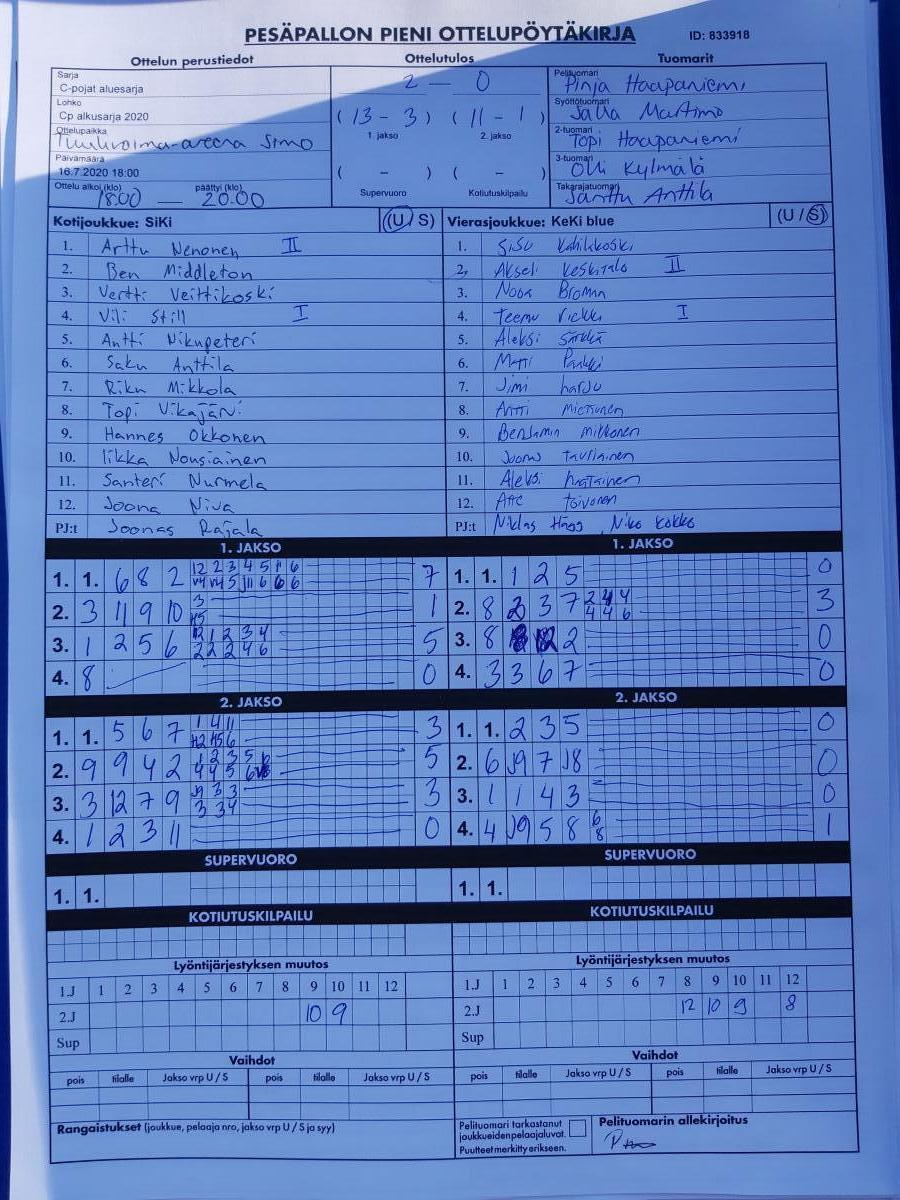 PESÄPALLON PIENI OTTELUPÖYTÄKIRJA ID: 833918
Ottelun perustiedot Ottelutulos Tuomarit
Sarja
C-pojat aluesarja
Lohko
Cp alkusarja 2020
Ottelupaikka
Tuulivoima-areena Simo
Päivämäärä
16.7.2020 18:00
Ottelu alkoi (klo) päättyi (klo)
18:00 — 20.00
2 — 0
(13 - 3) (11 - 1)
1. jakso 2. jakso
( - ) ( - )
Supervuoro Kotiutuskilpailu
Pelituomari
Pinja Haapaniemi
Syöttötuomari
Salla Martimo
2-tuomari
Topi Haapaniemi
3-tuomari
Olli Kylmälä
Takarajatuomari
Santtu Anttila
Kotijoukkue: SiKi (U / S)
1. Arttu Nenonen II
2. Ben Middleton
3. Vertti Veittikoski
4. Vili Still I
5. Antti Nikupeteri
6. Saku Anttila
7. Riku Mikkola
8. Topi Vikajärvi
9. Hannes Okkonen
10. Iikka Nousiainen
11. Santeri Nurmela
12. Joona Niva
PJ:t Joonas Rajala
Vierasjoukkue: KeKi blue (U / S)
1. Sisu
2. Akseli Keskitalo II
3. Nooa Broman
4. Teemu I
5. Aleksi Särkkä
6. Matti
7. Jimi Harju
8. Antti Miettunen
9. Benjamin Mikkonen
10. Joonas
11. Aleksi
12. Atte Toivonen
PJ:t Niklas Hägg, Niko Kokko
1. JAKSO
1. 1. 6 8 2 7
2. 3 11 9 10 1
3. 1 2 5 6 5
4. 8 0
2. JAKSO
1. 1. 5 6 7 3
2. 9 9 4 2 5
3. 3 12 7 9 3
4. 1 2 3 11 0
SUPERVUORO
1. 1.
KOTIUTUSKILPAILU
1. JAKSO
1. 1. 1 2 5 0
2. 8 3 7 3
3. 8 2 0
4. 3 3 6 7 0
2. JAKSO
1. 1. 2 3 5 0
2. 6 J9 7 J8 0
3. 1 1 4 3 0
4. 4 J9 5 8 6 8 1
SUPERVUORO
1. 1.
KOTIUTUSKILPAILU
Lyöntijärjestyksen muutos
1.J 1 2 3 4 5 6 7 8 9 10 11 12
2.J 10 9
Sup
Vaihdot
pois tilalle Jakso vrp U / S pois tilalle Jakso vrp U / S
Lyöntijärjestyksen muutos
1.J 1 2 3 4 5 6 7 8 9 10 11 12
2.J 12 10 9 8
Sup
Vaihdot
pois tilalle Jakso vrp U / S pois tilalle Jakso vrp U / S
Rangaistukset (joukkue, pelaaja nro, jakso vrp U / S ja syy)
Pelituomari tarkastanut
joukkueiden pelaajaluvat.
Puutteet merkitty erikseen.
Pelituomarin allekirjoitus